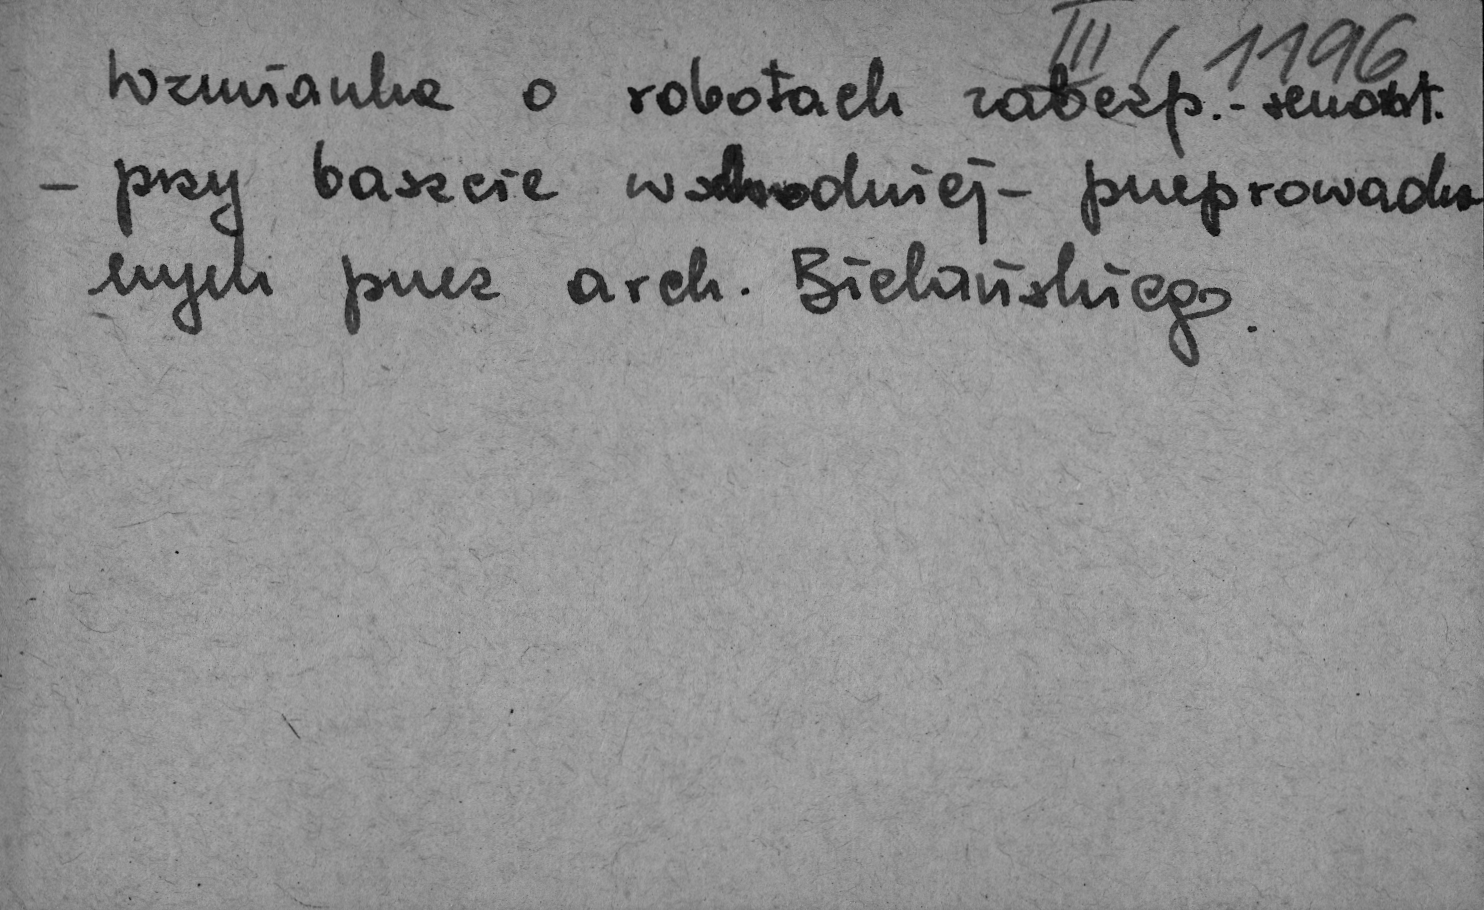 III / 1196
Wzmianka o robotach zabezp.-remont.
- przy baszcie wschodniej - przeprowadzo
nych przez arch. Bielańskiego.